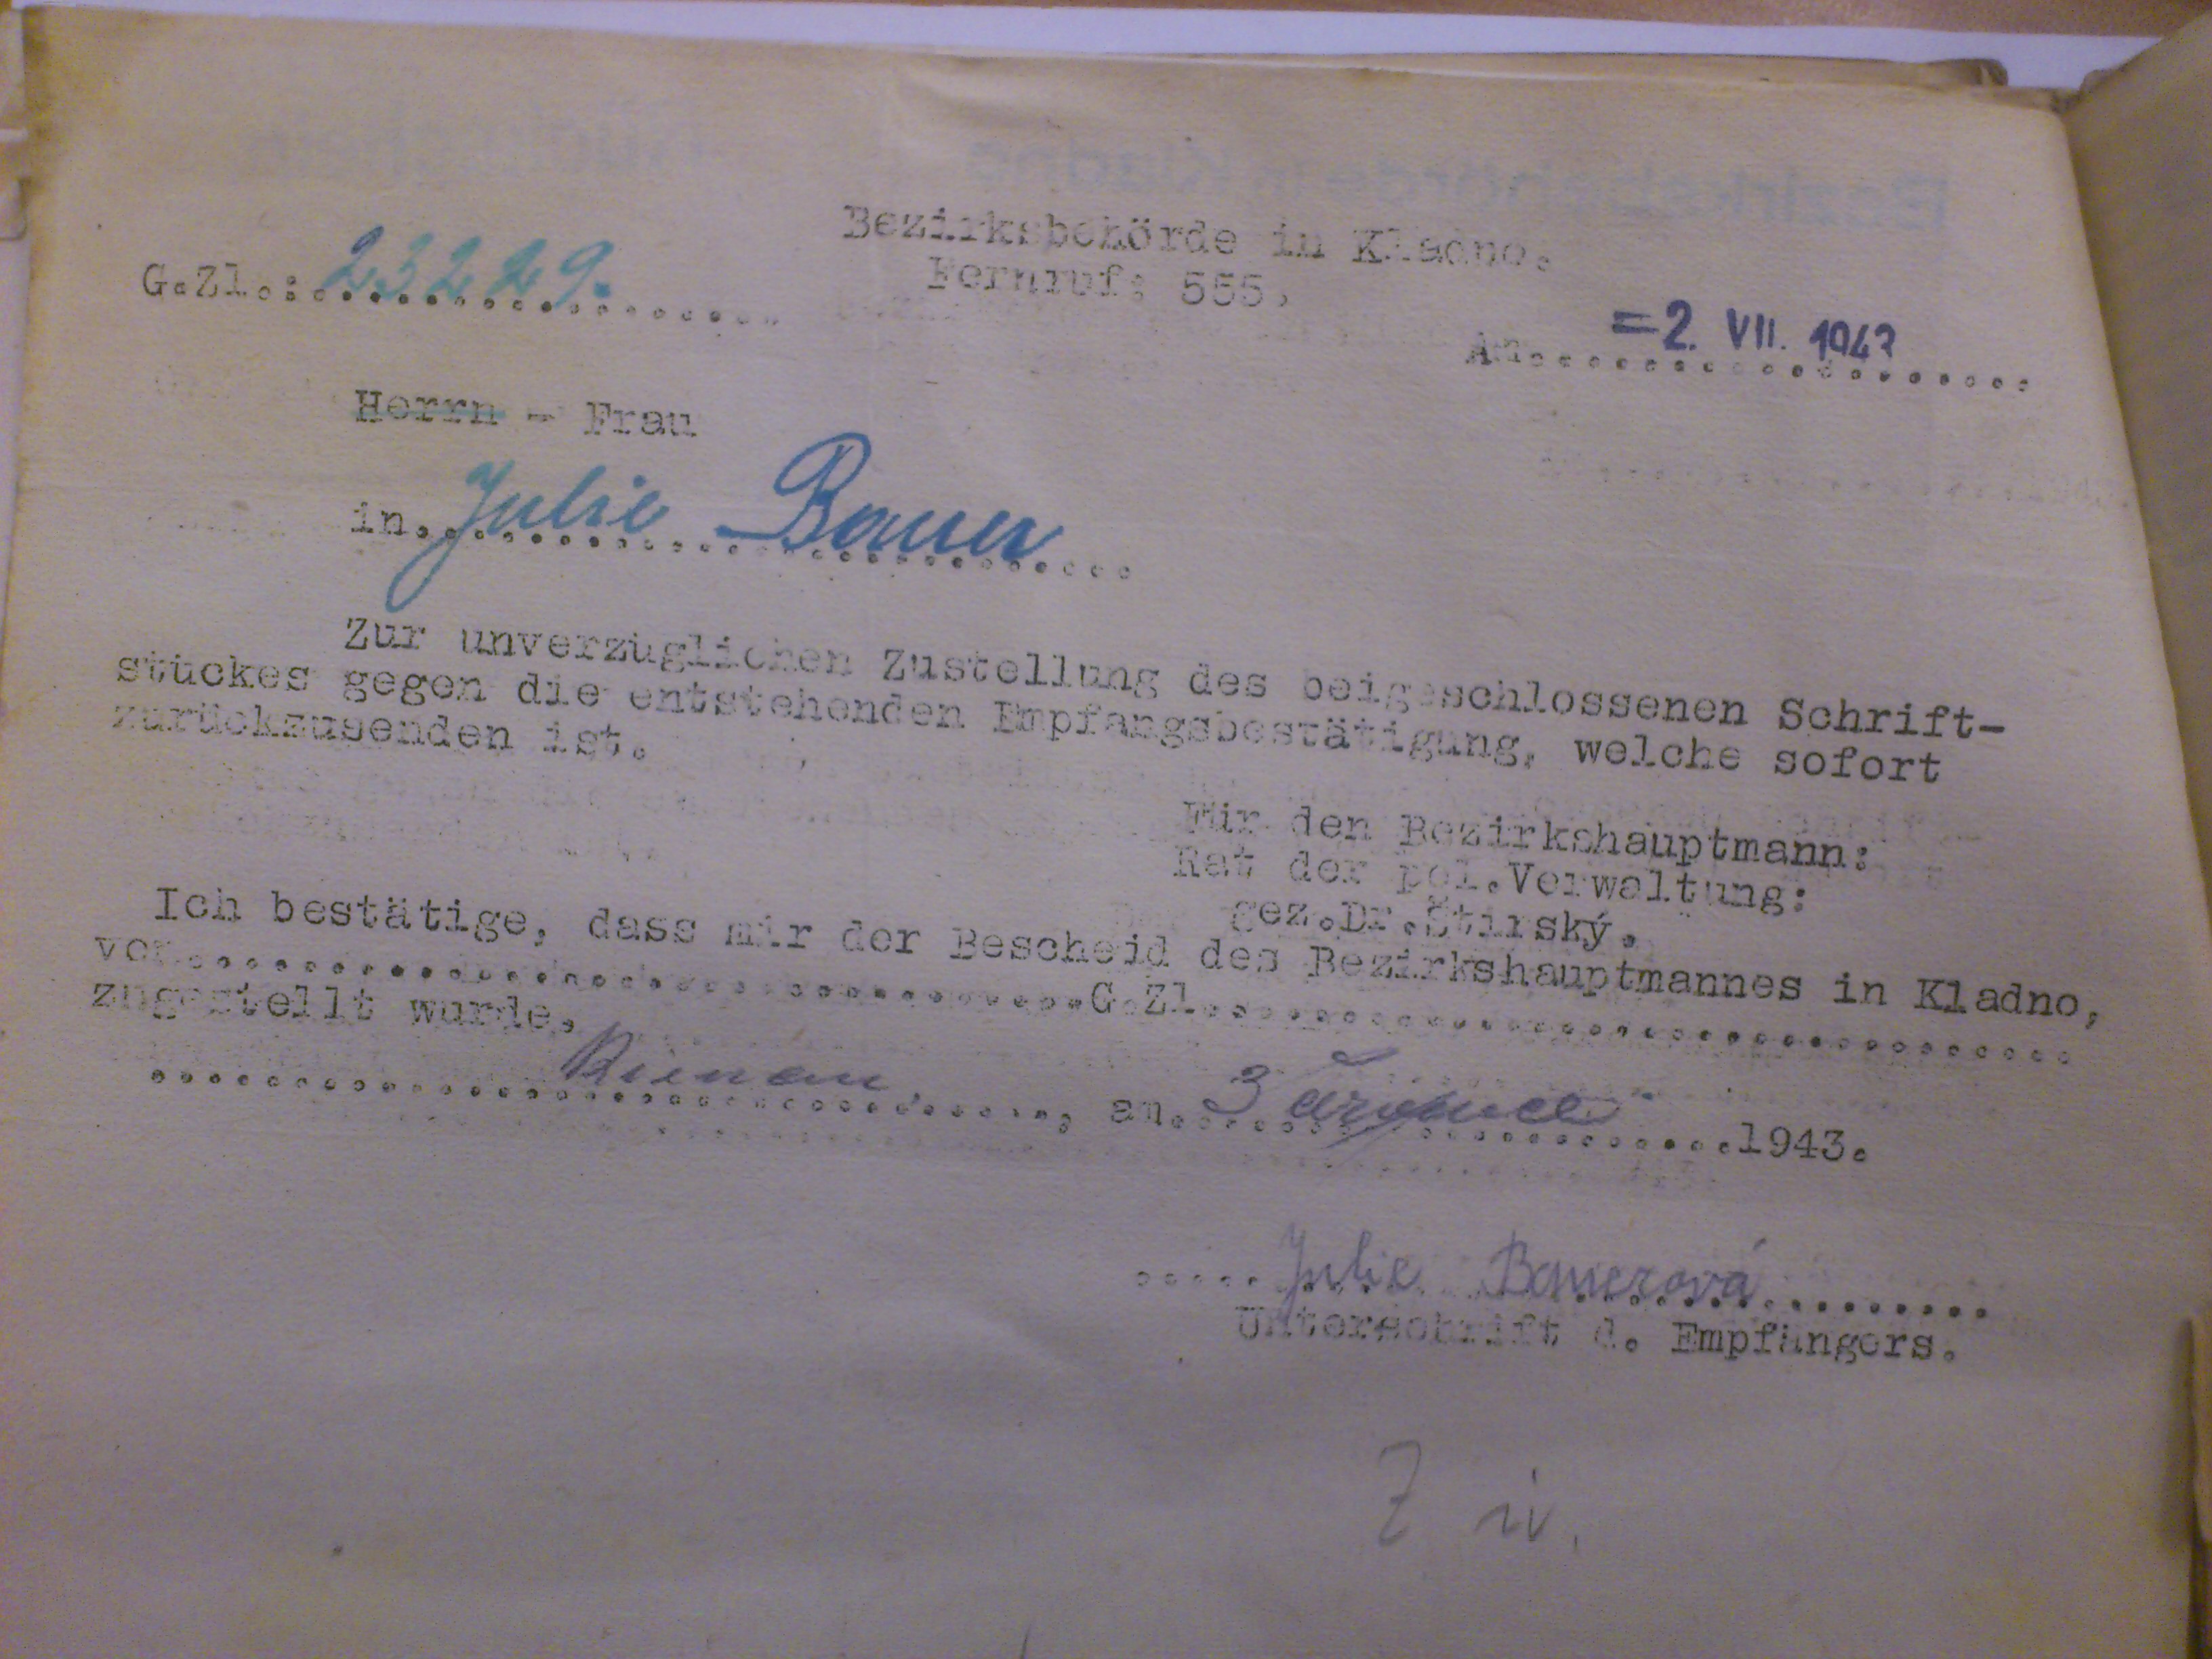 Bezirksbehörde in Kladno.
G.Zl.: 23229. Fernruf: 555.
Am =2. VII. 1943
Herrn - Frau
in Julie Bauer
Zur unverzüglichen Zustellung des beigeschlossenen Schrift-
stückes gegen die entstehenden Empfangsbestätigung, welche sofort
zurückzusenden ist.
Für den Bezirkshauptmann:
Rat der pol.Verwaltung:
gez.Dr.Štirský.
Ich bestätige, dass mir der Bescheid des Bezirkshauptmannes in Kladno,
vom G.Zl.
zugestellt wurde,
, am 3 1943.
Julie Bauerová
Unterschrift d. Empfängers.